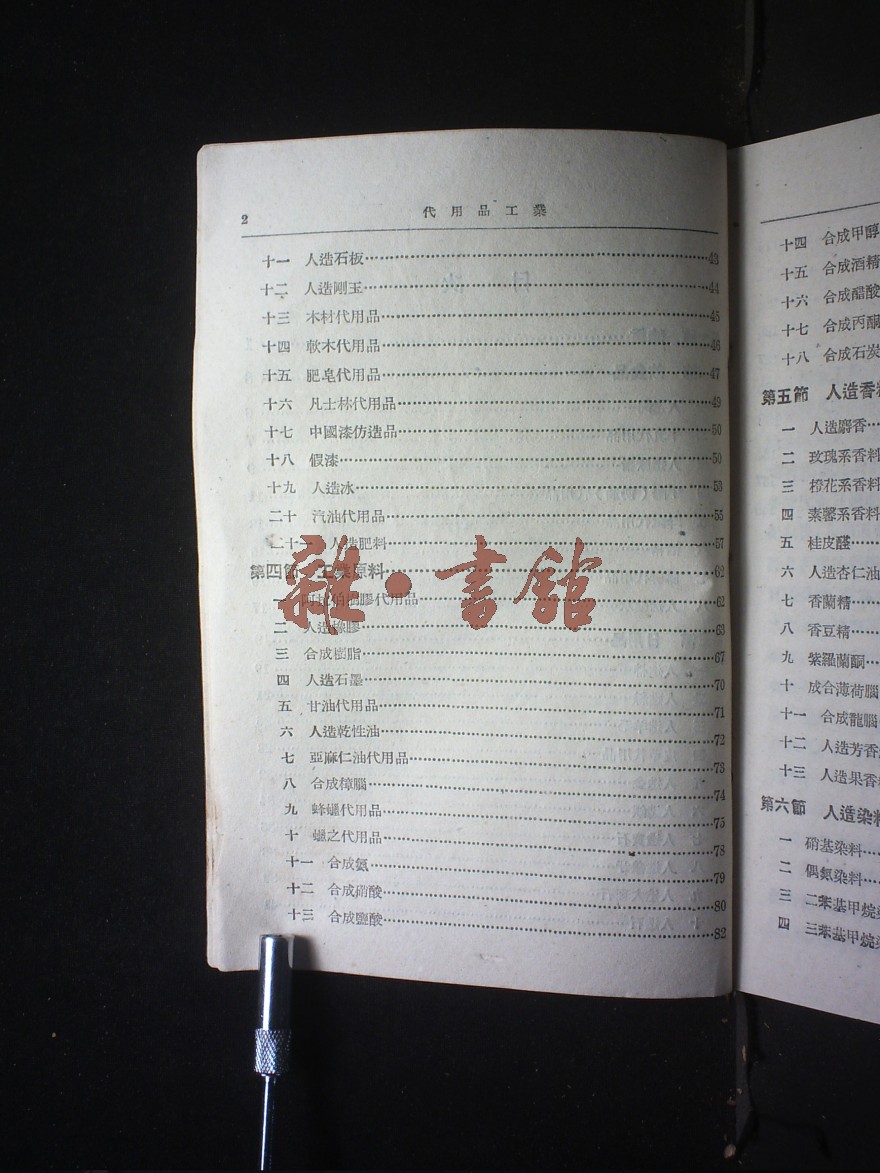 2
代用品工業
十一 人造石板 43
十二 人造剛玉 44
十三 木材代用品 45
十四 軟木代用品 46
十五 肥皂代用品 47
十六 凡士林代用品 49
十七 中國漆仿造品 50
十八 假漆 50
十九 人造冰 53
二十 汽油代用品 55
二十一 人造肥料 57
第四節 工業原料 62
一 阿拉伯樹膠代用品 62
二 人造橡膠 63
三 合成樹脂 67
四 人造石墨 70
五 甘油代用品 71
六 人造乾性油 72
七 亞麻仁油代用品 73
八 合成樟腦 74
九 蜂蠟代用品 75
十 蠟之代用品 78
十一 合成氨 79
十二 合成硝酸 80
十三 合成鹽酸 82
雜·書館
十四 合成甲醇
十五 合成酒精
十六 合成醋酸
十七 合成丙酮
十八 合成石炭
第五節 人造香料
一 人造麝香
二 玫瑰系香料
三 橙花系香料
四 素馨系香料
五 桂皮醛
六 人造杏仁油
七 香蘭精
八 香豆精
九 紫羅蘭酮
十 成合薄荷腦
十一 合成龍腦
十二 人造芳香
十三 人造果香
第六節 人造染料
一 硝基染料
二 偶氮染料
三 二苯基甲烷
四 三苯基甲烷